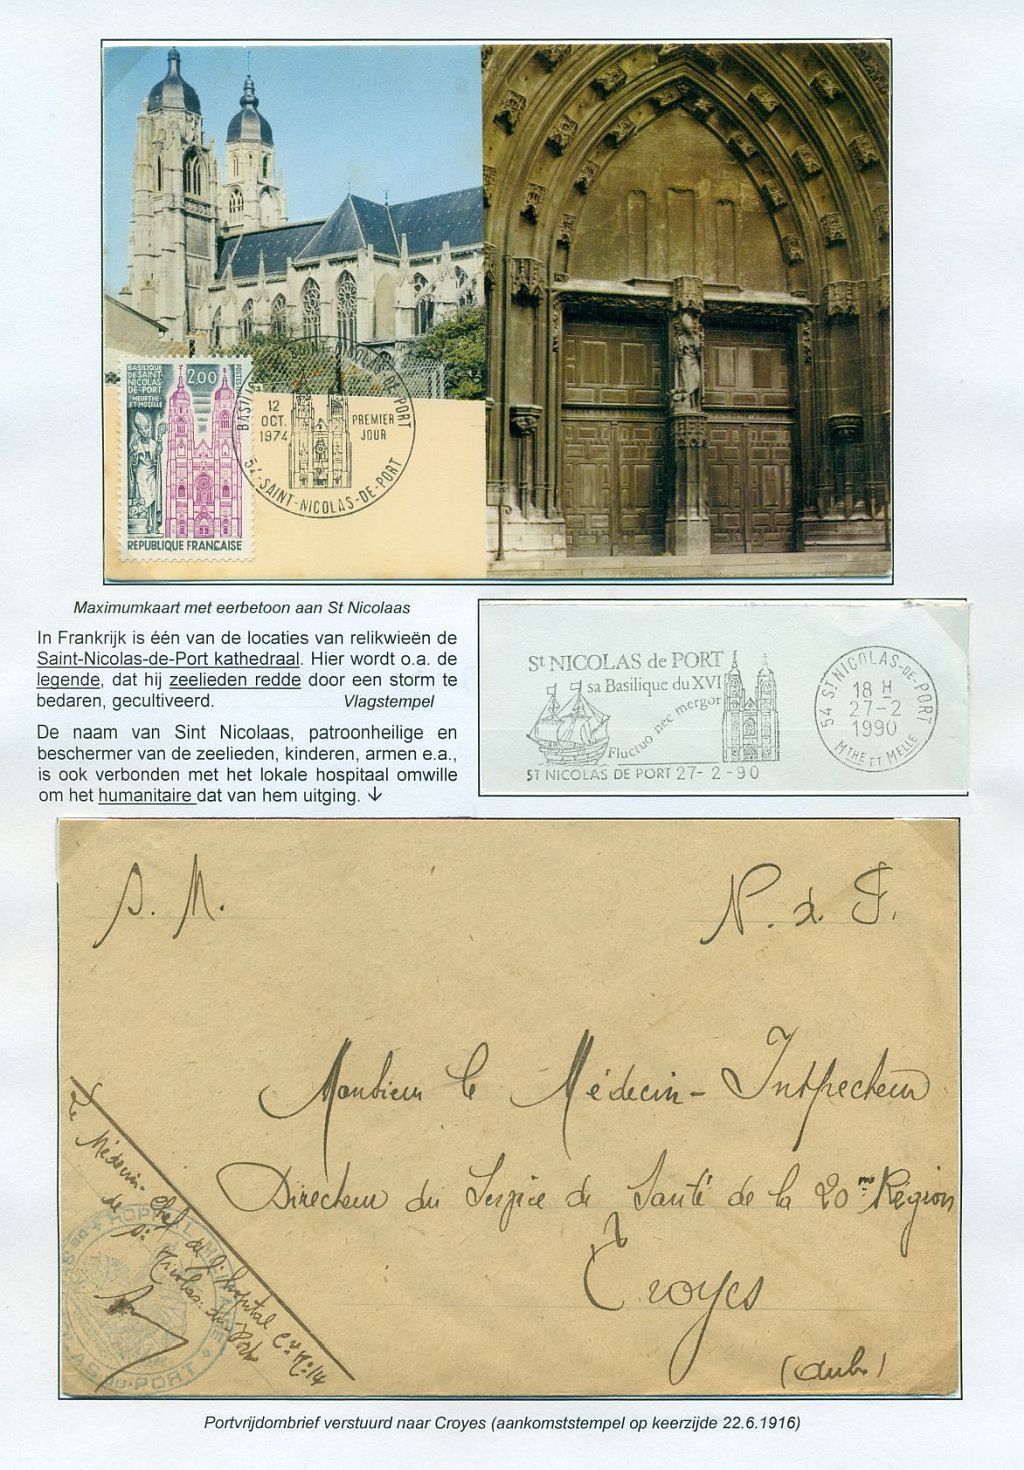 BASILIQUE
DE SAINT-
NICOLAS-
DE-PORT
MEURTHE-
ET-MOSELLE
2,00
REPUBLIQUE FRANÇAISE
12
OCT.
1974
PREMIER
JOUR
54-SAINT-NICOLAS-DE-PORT
Maximumkaart met eerbetoon aan St Nicolaas
In Frankrijk is één van de locaties van relikwieën de
Saint-Nicolas-de-Port kathedraal. Hier wordt o.a. de
legende, dat hij zeelieden redde door een storm te
bedaren, gecultiveerd. Vlagstempel
De naam van Sint Nicolaas, patroonheilige en
beschermer van de zeelieden, kinderen, armen e.a.,
is ook verbonden met het lokale hospitaal omwille
om het humanitaire dat van hem uitging. ↓
St NICOLAS de PORT
sa Basilique du XVI
Fluctuo nec mergor
ST NICOLAS DE PORT 27-2-90
54 ST NICOLAS-DE-PORT
18 H
27-2
1990
MTHE ET MELLE
S. M.
N. d. F.
Monsieur le Médecin-Inspecteur
Directeur du Service de Santé de la 20me Région
à
Troyes
(Aube)
Le Médecin-Chef de l'hôpital Cre No 14
de St Nicolas-du-Port
HOPITAL MILITAIRE
DU-PORT
Portvrijdombrief verstuurd naar Croyes (aankomststempel op keerzijde 22.6.1916)